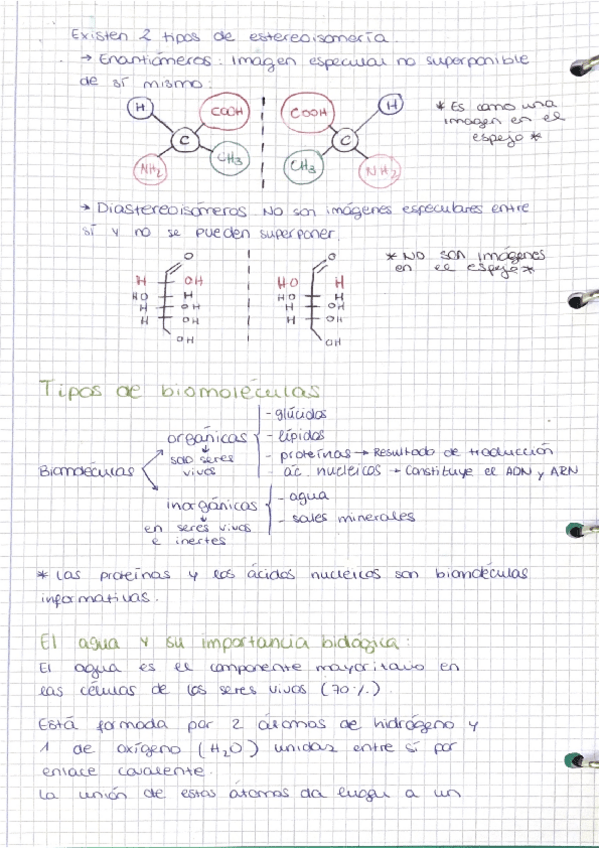 Existen 2 tipos de estereoisomería.
→ Enantiómeros: Imagen especular no superponible
de sí mismo.
H COOH COOH H
C C
NH2 CH3 CH3 NH2
* Es como una
imagen en el
espejo *
→ Diastereoisómeros No son imágenes especulares entre
sí y no se pueden superponer.
O O
H OH HO H
HO H HO H
H OH H OH
H OH H OH
OH OH
* No son imágenes
en el espejo *
Tipos de biomoléculas
Biomoléculas
orgánicas
solo seres
vivos
- glúcidos
- lípidos
- proteínas → Resultado de traducción
- ác. nucleicos → Constituye el ADN y ARN
inorgánicas
en seres vivos
e inertes
- agua
- sales minerales
* Las proteínas y los ácidos nucleicos son biomoléculas
informativas.
El agua y su importancia biológica:
El agua es el componente mayoritario en
las células de los seres vivos (70%.)
Está formada por 2 átomos de hidrógeno y
1 de oxígeno (H2O) unidas entre sí por
enlace covalente.
La unión de estas átomos da lugar a un